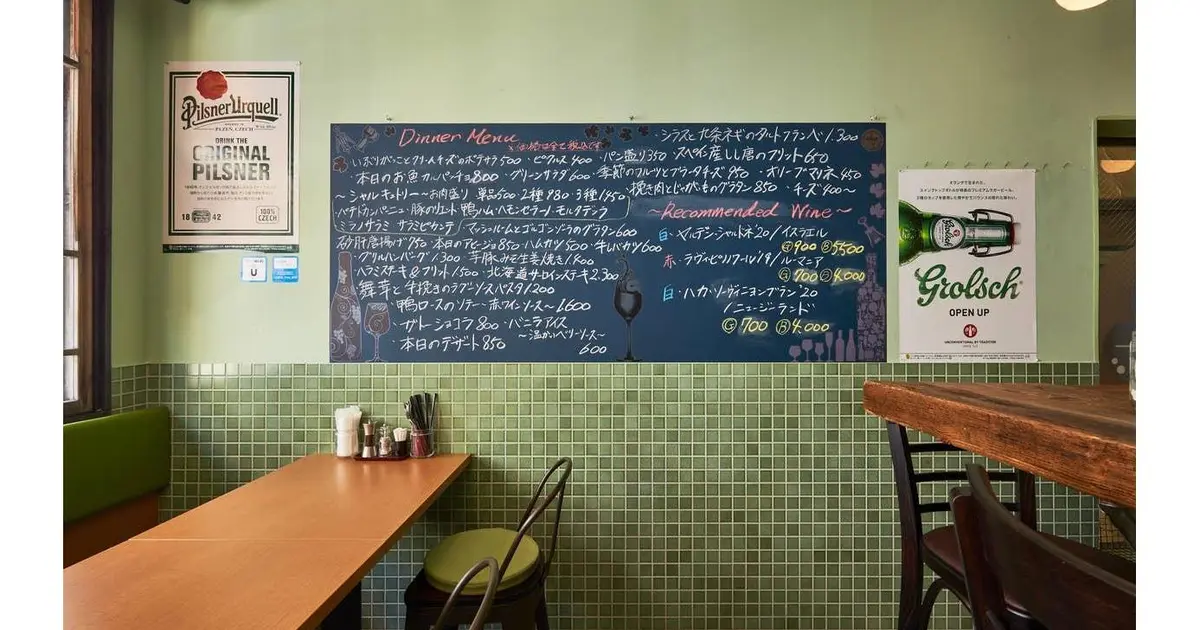 Pilsner Urquell
PLZEŇ, CZECH
DRINK THE
ORIGINAL
PILSNER
18 42
100% CZECH
U
Dinner Menu
いぶりがっことクリームチーズのポテサラ500 ・ピクルス400 ・パン盛り350
・本日のお魚カルパッチョ800 ・グリーンサラダ600
〜シャルキュトリーお肉盛り 単品500・2種980・3種1,450
パテドカンパーニュ・豚のリエット・鴨ハム・ハモンセラーノ・モルタデッラ
ミラノサラミ
・マッシュルームとゴルゴンゾーラのグラタン600
砂肝唐揚げ750・本日のアヒージョ850・ハムカツ500・牛レバカツ600
・グリルハンバーグ1,300・芋豚みそ生姜焼き1,800
・ハラミステーキ&フリット1,500・北海道サーロインステーキ2,300
舞茸と手挽きのラグーソースパスタ1,200
・鴨ロースのソテー・赤ワインソース〜1,600
・ガトーショコラ800・バニラアイス
〜温かいベリーソース〜
600
・本日のデザート850
・シラスと九条ネギのタルトフランベ1,300
・スペイン産しし唐のフリット650
・季節のフルーツとブラータチーズ950 ・オリーブマリネ450
・挽き肉とじゃがいものグラタン850 ・チーズ900〜
〜Recommended Wine〜
白・マルテン・シャルドネ20/イスラエル
G900 B5,500
赤・ラヴィピノノワール19/ルーマニア
G700 B4,000
白・ハカ・ソーヴィニヨンブラン'20
/ニュージーランド
G700 B4,000
Grolsch
Grolsch
OPEN UP
UNCONVENTIONAL BY TRADITION